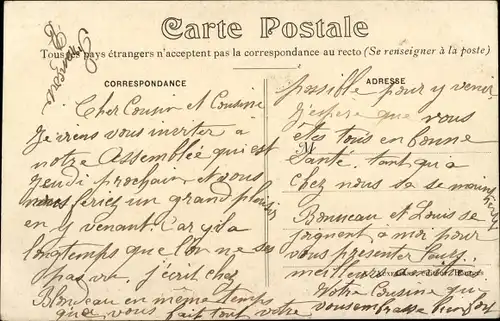 Carte Postale
Tous les pays étrangers n'acceptent pas la correspondance au recto (Se renseigner à la poste)
CORRESPONDANCE
Cher Cousin et Cousine
Je viens vous inviter a
notre Assemblée qui est
jeudi prochain et vous
nous feriez un grand plaisir
en y venant. Car y'a
longtemps que l'on ne ses
pas vu. j'ecrit chez
Bonneau en même temps
que vous fait tout votre
ADRESSE
possible pour y venir
j'espere que vous
etes tous en bonne
M
Santé. tant qu'a
chez nous sa se maintient
Bonneau et Louis se
joignent a moi pour
vous presenter leurs
meilleurs
Votre Cousine qui
vous embrasse bien fort